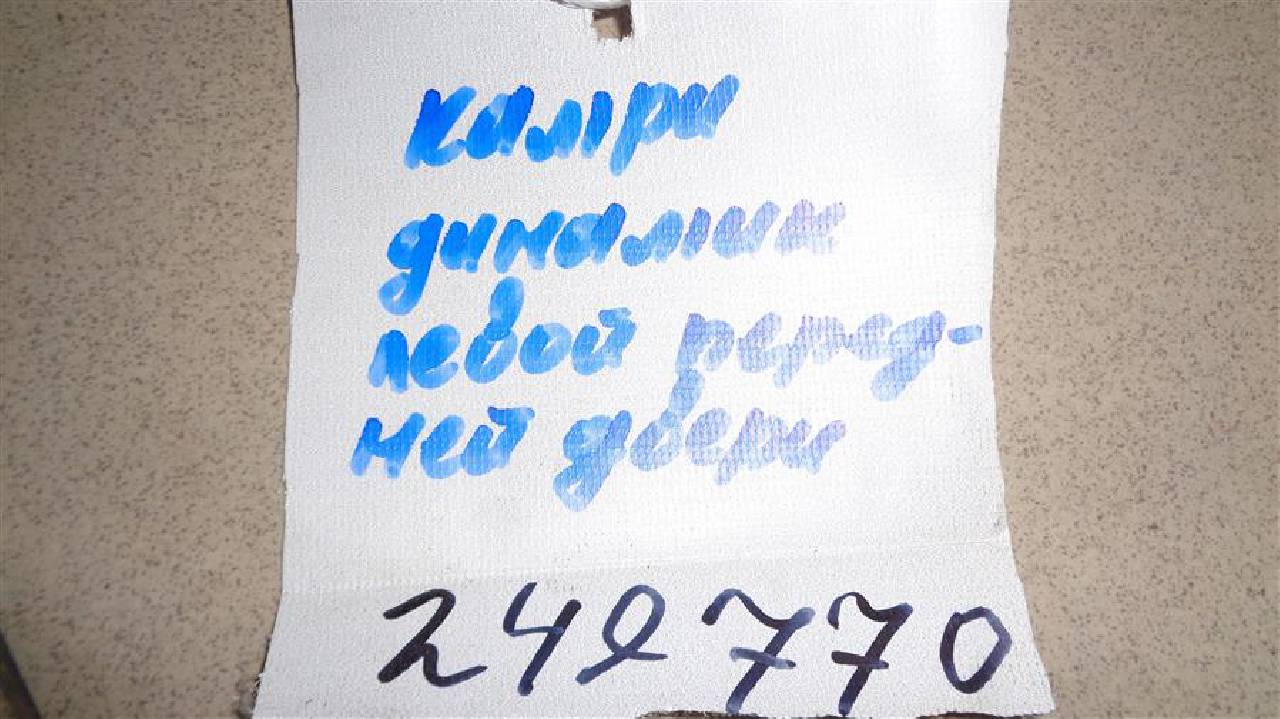 камри
динамик
левой перед-
ней двери
242770